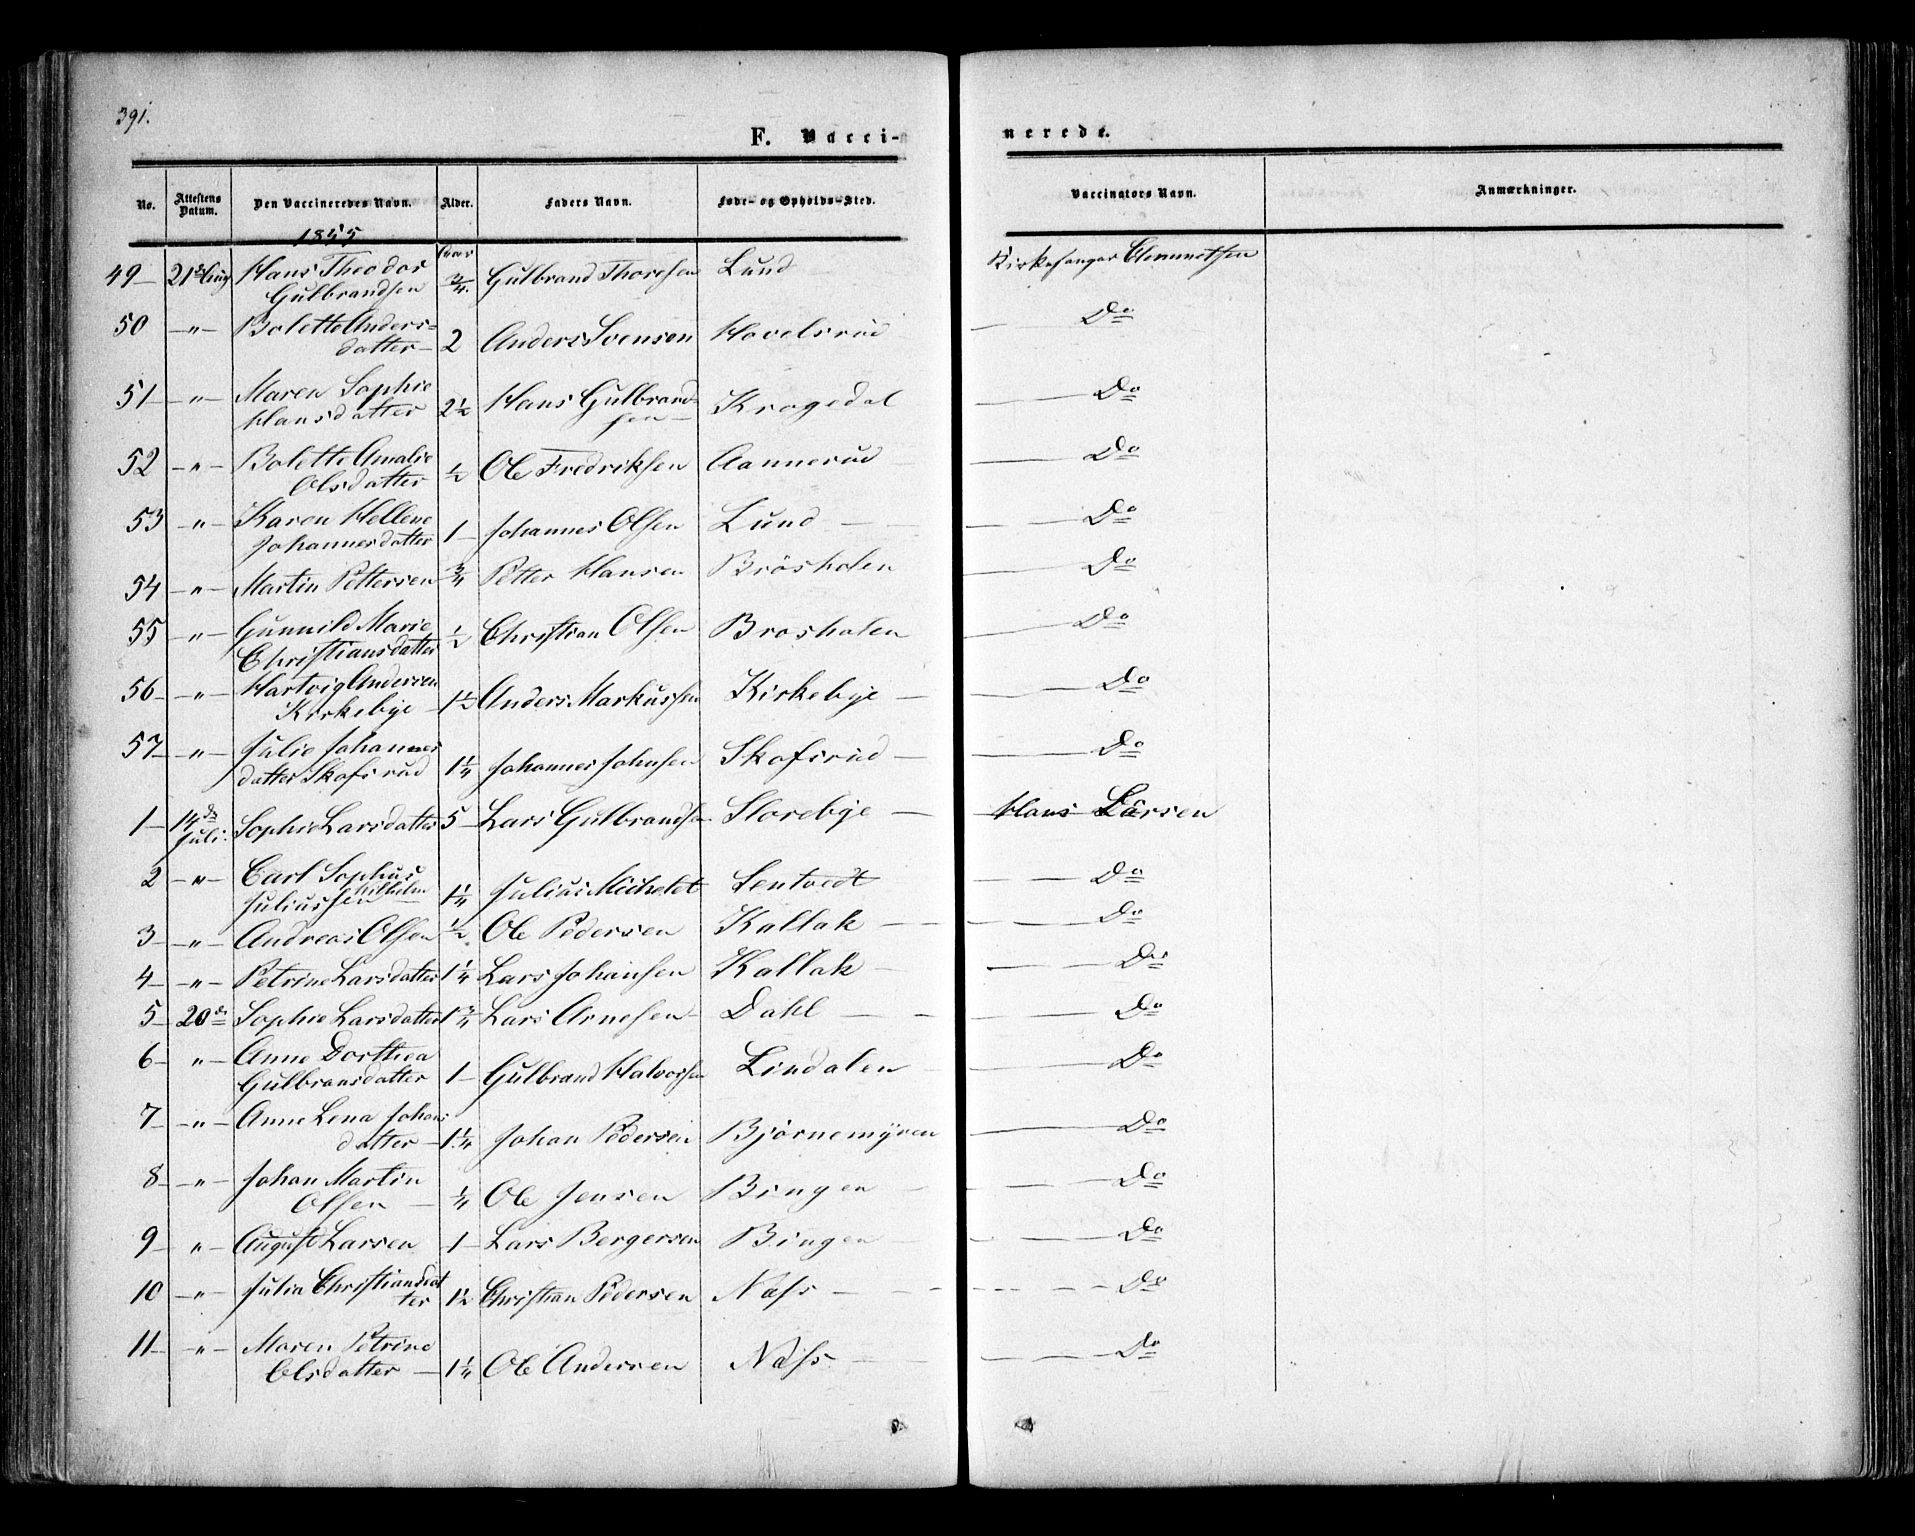 391.
F. Vacci-
nerede.
No. Attestens Datum. Den Vaccineredes Navn. Alder. Faders Navn. Føde- og Opholds-Sted. Vaccinators Navn. Anmærkninger.
1855
49 21de Aug Hans Theodor Gulbrandsen 3/4 Gulbrand Thoresen Lund Kirkesanger Clemmetsen
50 —"— Bolette Anders= datter 2 Anders Svenson Hovelsrud Do
51 —"— Maren Sophie Hansdatter 2 1/2 Hans Gulbrand= sen Kragedal Do
52 —"— Bolette Amalie Olsdatter 1/2 Ole Fredriksen Aannerud Do
53 —"— Karen Hellene Johannesdatter 1 Johannes Olsen Lund Do
54 —"— Martin Pettersen 3/4 Petter Hansen Brösholen Do
55 —"— Gunnild Marie Christiansdatter 1/2 Christian Olsen Brosholen Do
56 —"— Hartvig Andersen Kirkebye 1 1/2 Anders Markussen Kirkebye Do
57 —"— Julie Johannes datter Skofsrud 1 1/4 Johannes Johnsen Skofsrud Do
1 14de Juli. Sophie Larsdatter 5 Lars Gulbrandsen Storebye Hans Larsen
2 —"— Carl Sophus Wilhelm Juliussen 1 1/4 Julius Michelet Sentvedt Do
3 —"— Andreas Olsen 1/2 Ole Pedersen Kallak Do
4 —"— Petrine Larsdatter 1 1/4 Lars Johansen Kallak Do
5 20de Sophie Larsdatter 1 3/4 Lars Arnesen Dahl Do
6 —"— Anne Dorthea Gulbransdatter 1 Gulbrand Halvorsen Lindalen Do
7 —"— Anne Lena Johans datter 1 1/4 Johan Pedersen Bjørnemyren Do
8 —"— Johan Martin Olsen 1/4 Ole Jensen Bingen Do
9 —"— August Larsen 1 Lars Bergersen Bingen Do
10 —"— Julia Christiansdat ter 1 1/2 Christian Pedersen Næss Do
11 —"— Maren Petrine Olsdatter 1 1/4 Ole Andersen Næss Do